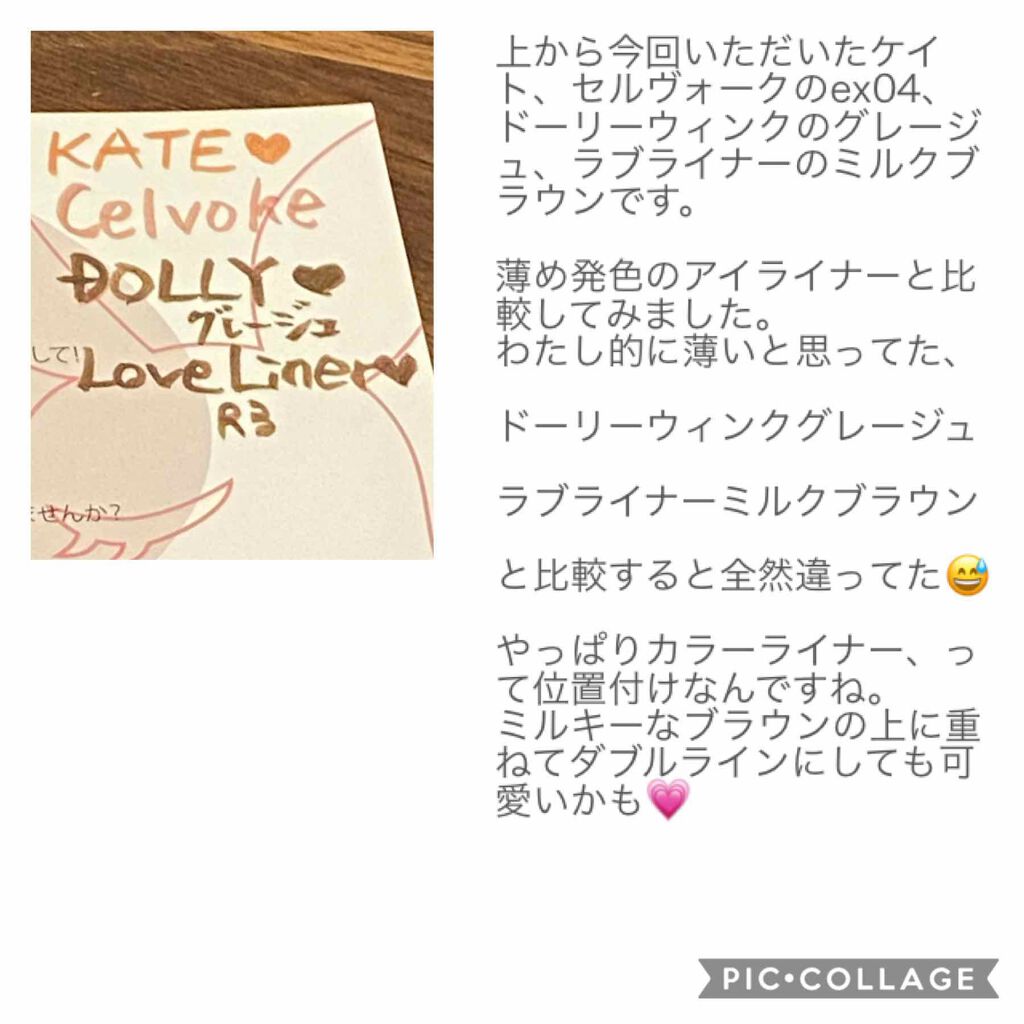 KATE♥
Celvoke
DOLLY♥
グレージュ
して!
Love Liner♥
R3
ませんか?
上から今回いただいたケイ
ト、セルヴォークのex04、
ドーリーウィンクのグレージ
ュ、ラブライナーのミルクブ
ラウンです。
薄め発色のアイライナーと比
較してみました。
わたし的に薄いと思ってた、
ドーリーウィンクグレージュ
ラブライナーミルクブラウン
と比較すると全然違ってた😅
やっぱりカラーライナー、っ
て位置付けなんですね。
ミルキーなブラウンの上に重
ねてダブルラインにしても可
愛いかも💗
PIC•COLLAGE